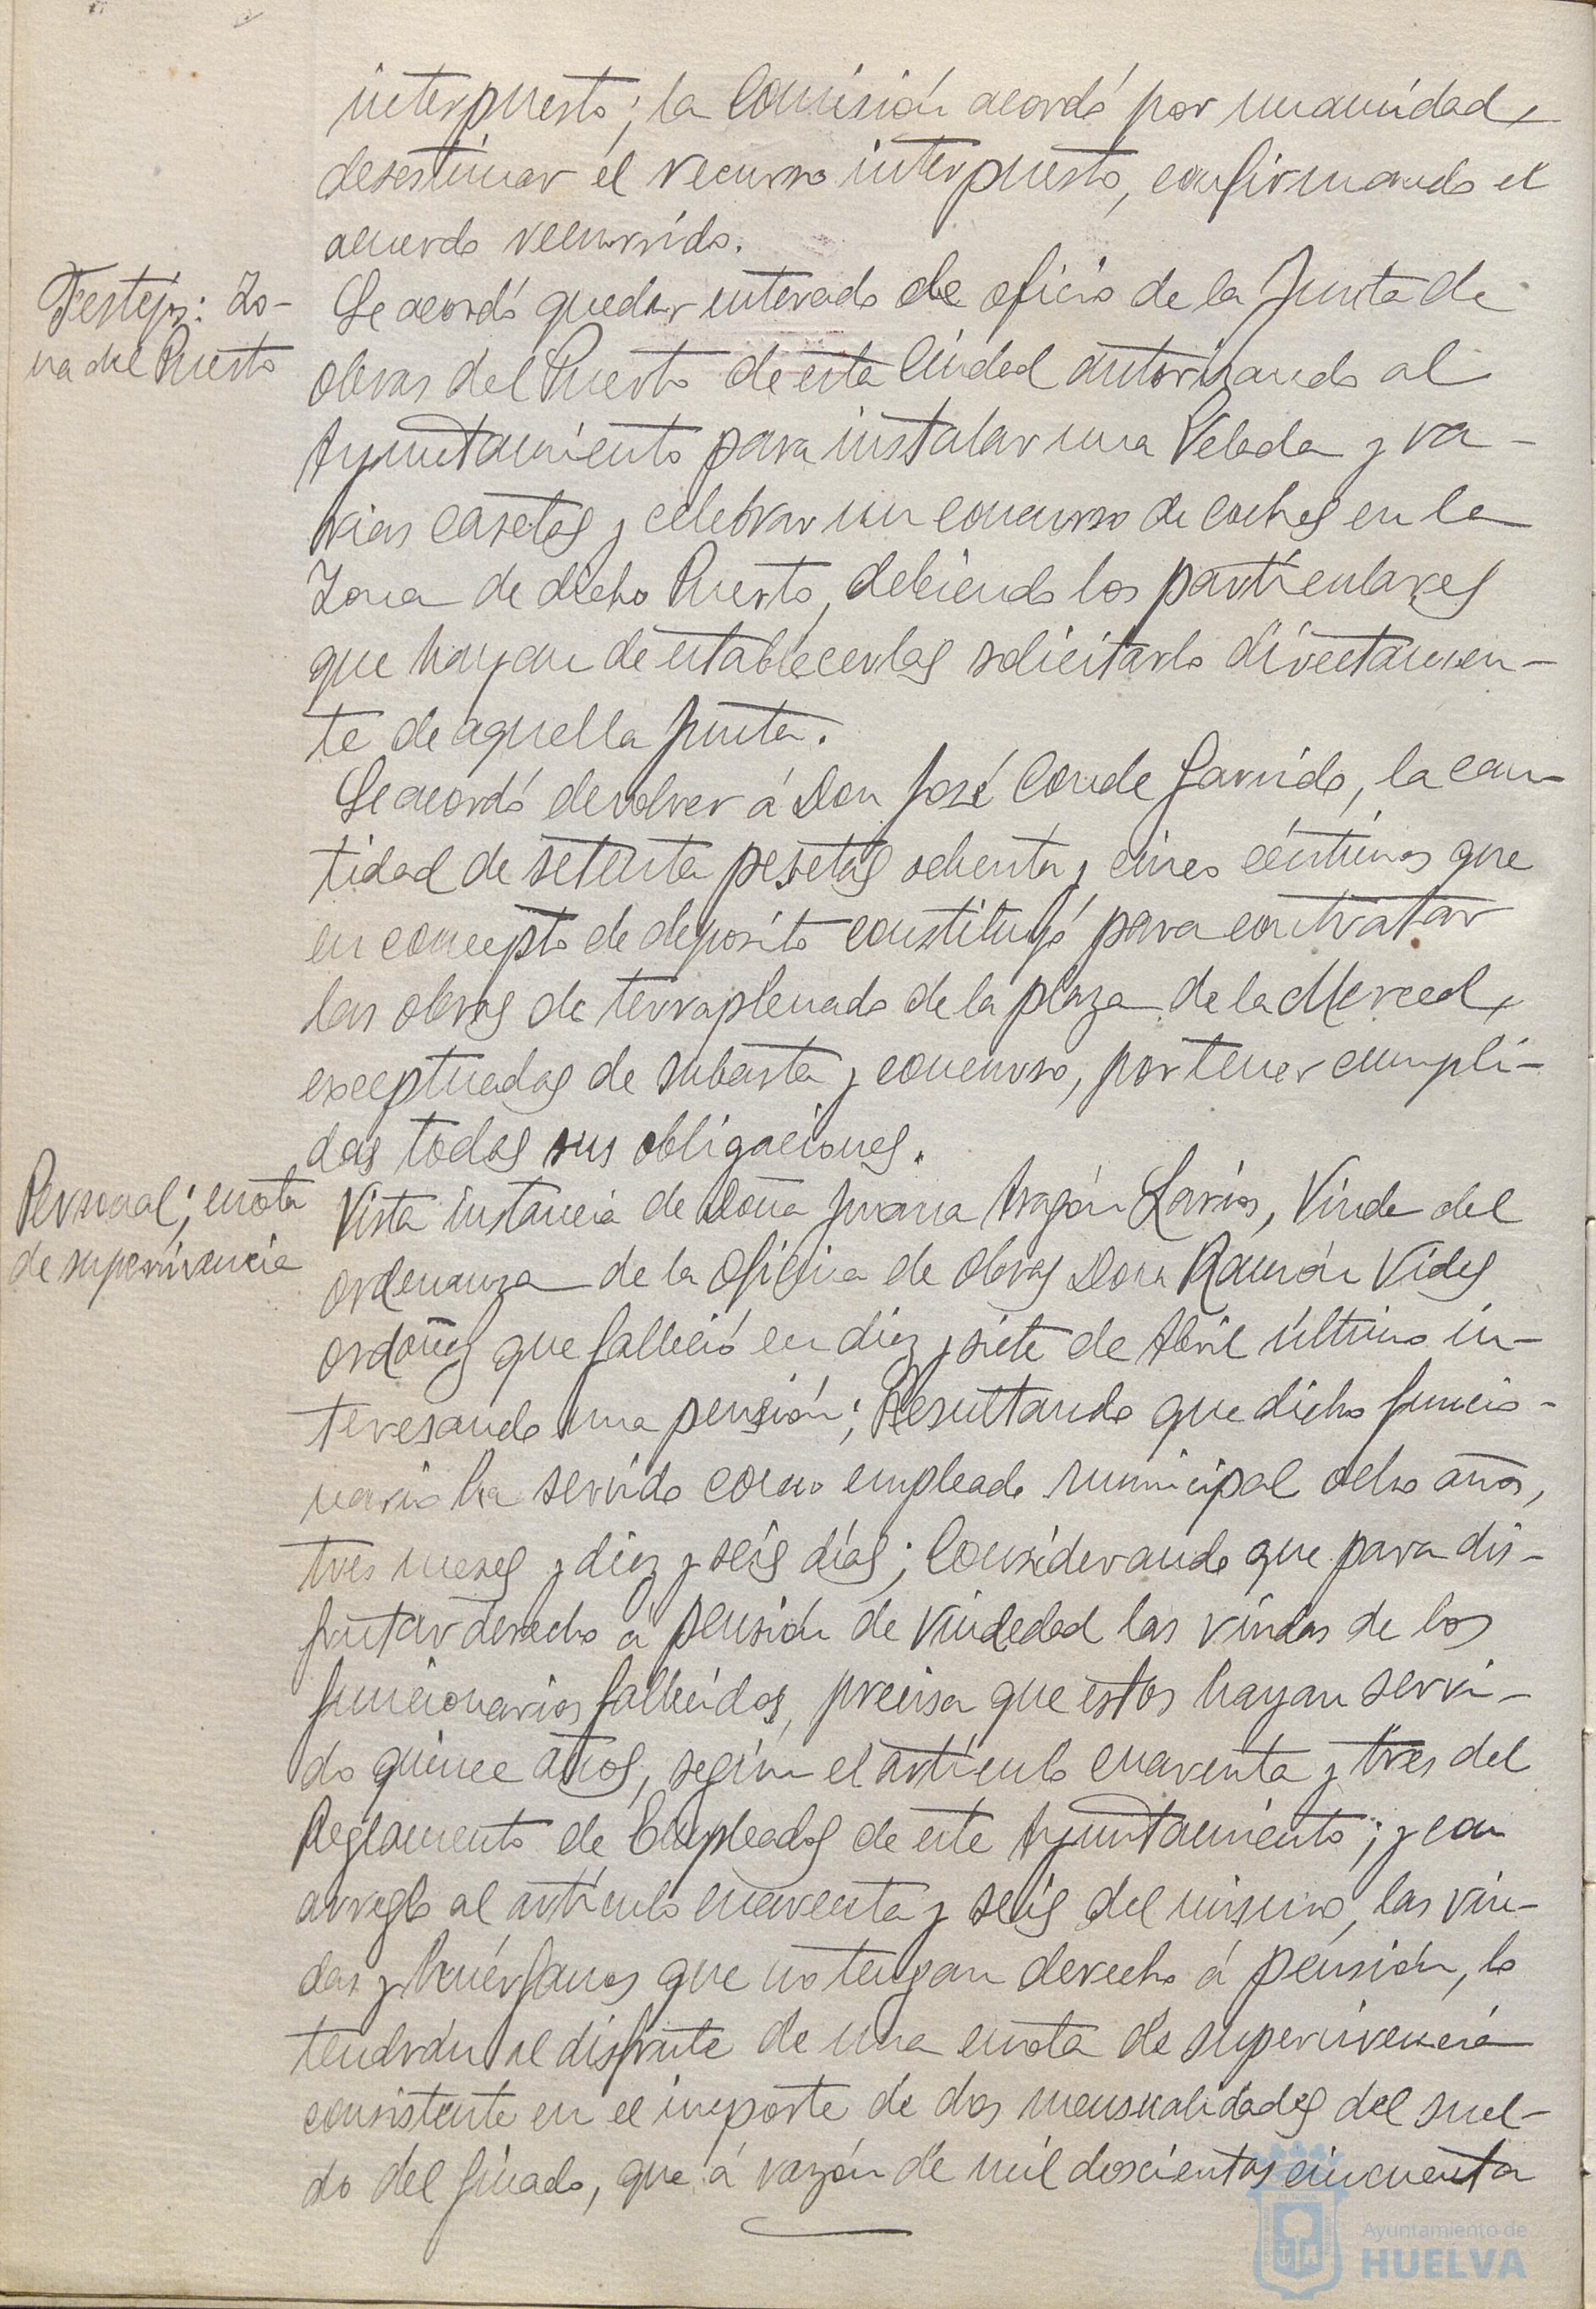 interpuesto; la Comisión acordó por unanimidad,
desestimar el recurso interpuesto, confirmando el
acuerdo recurrido.
Festejos: Zo-
na del Puerto
Se acordó quedar enterado de oficio de la Junta de
obras del Puerto de esta Ciudad autorizando al
Ayuntamiento para instalar una Velada y va-
rias casetas y celebrar un concurso de coches en la
Zona de dicho Puerto, debiendo los particulares
que hayan de establecerlas solicitarlo directamen-
te de aquella Junta.
Se acordó devolver á Don José Conde Garrido, la can-
tidad de setenta pesetas ochenta y cinco céntimos que
en concepto de depósito constituyó para contratar
las obras de terraplenado de la plaza de la Merced,
exceptuadas de subasta y concurso, por tener cumpli-
das todas sus obligaciones.
Personal; cuota
de supervivencia
Vista instancia de Doña Juana Aragón Larios, Viuda del
ordenanza de la oficina de obras Don Ramón Vides
Ordoñez que falleció en diez y siete de Abril último in-
teresando una pensión; Resultando que dicho funcio-
nario ha servido como empleado municipal ocho años,
tres meses y diez y seis días; Considerando que para dis-
frutar derecho á pensión de viudedad las viudas de los
funcionarios fallecidos, precisa que estos hayan servi-
do quince años, según el artículo cuarenta y tres del
Reglamento de Empleados de este Ayuntamiento; y con
arreglo al artículo cuarenta y seis del mismo, las viu-
das y huérfanos que no tengan derecho á pensión, lo
tendrán al disfrute de una cuota de supervivencia
consistente en el importe de dos mensualidades del suel-
do del finado, que á razón de mil doscientas cincuenta
Ayuntamiento de
HUELVA